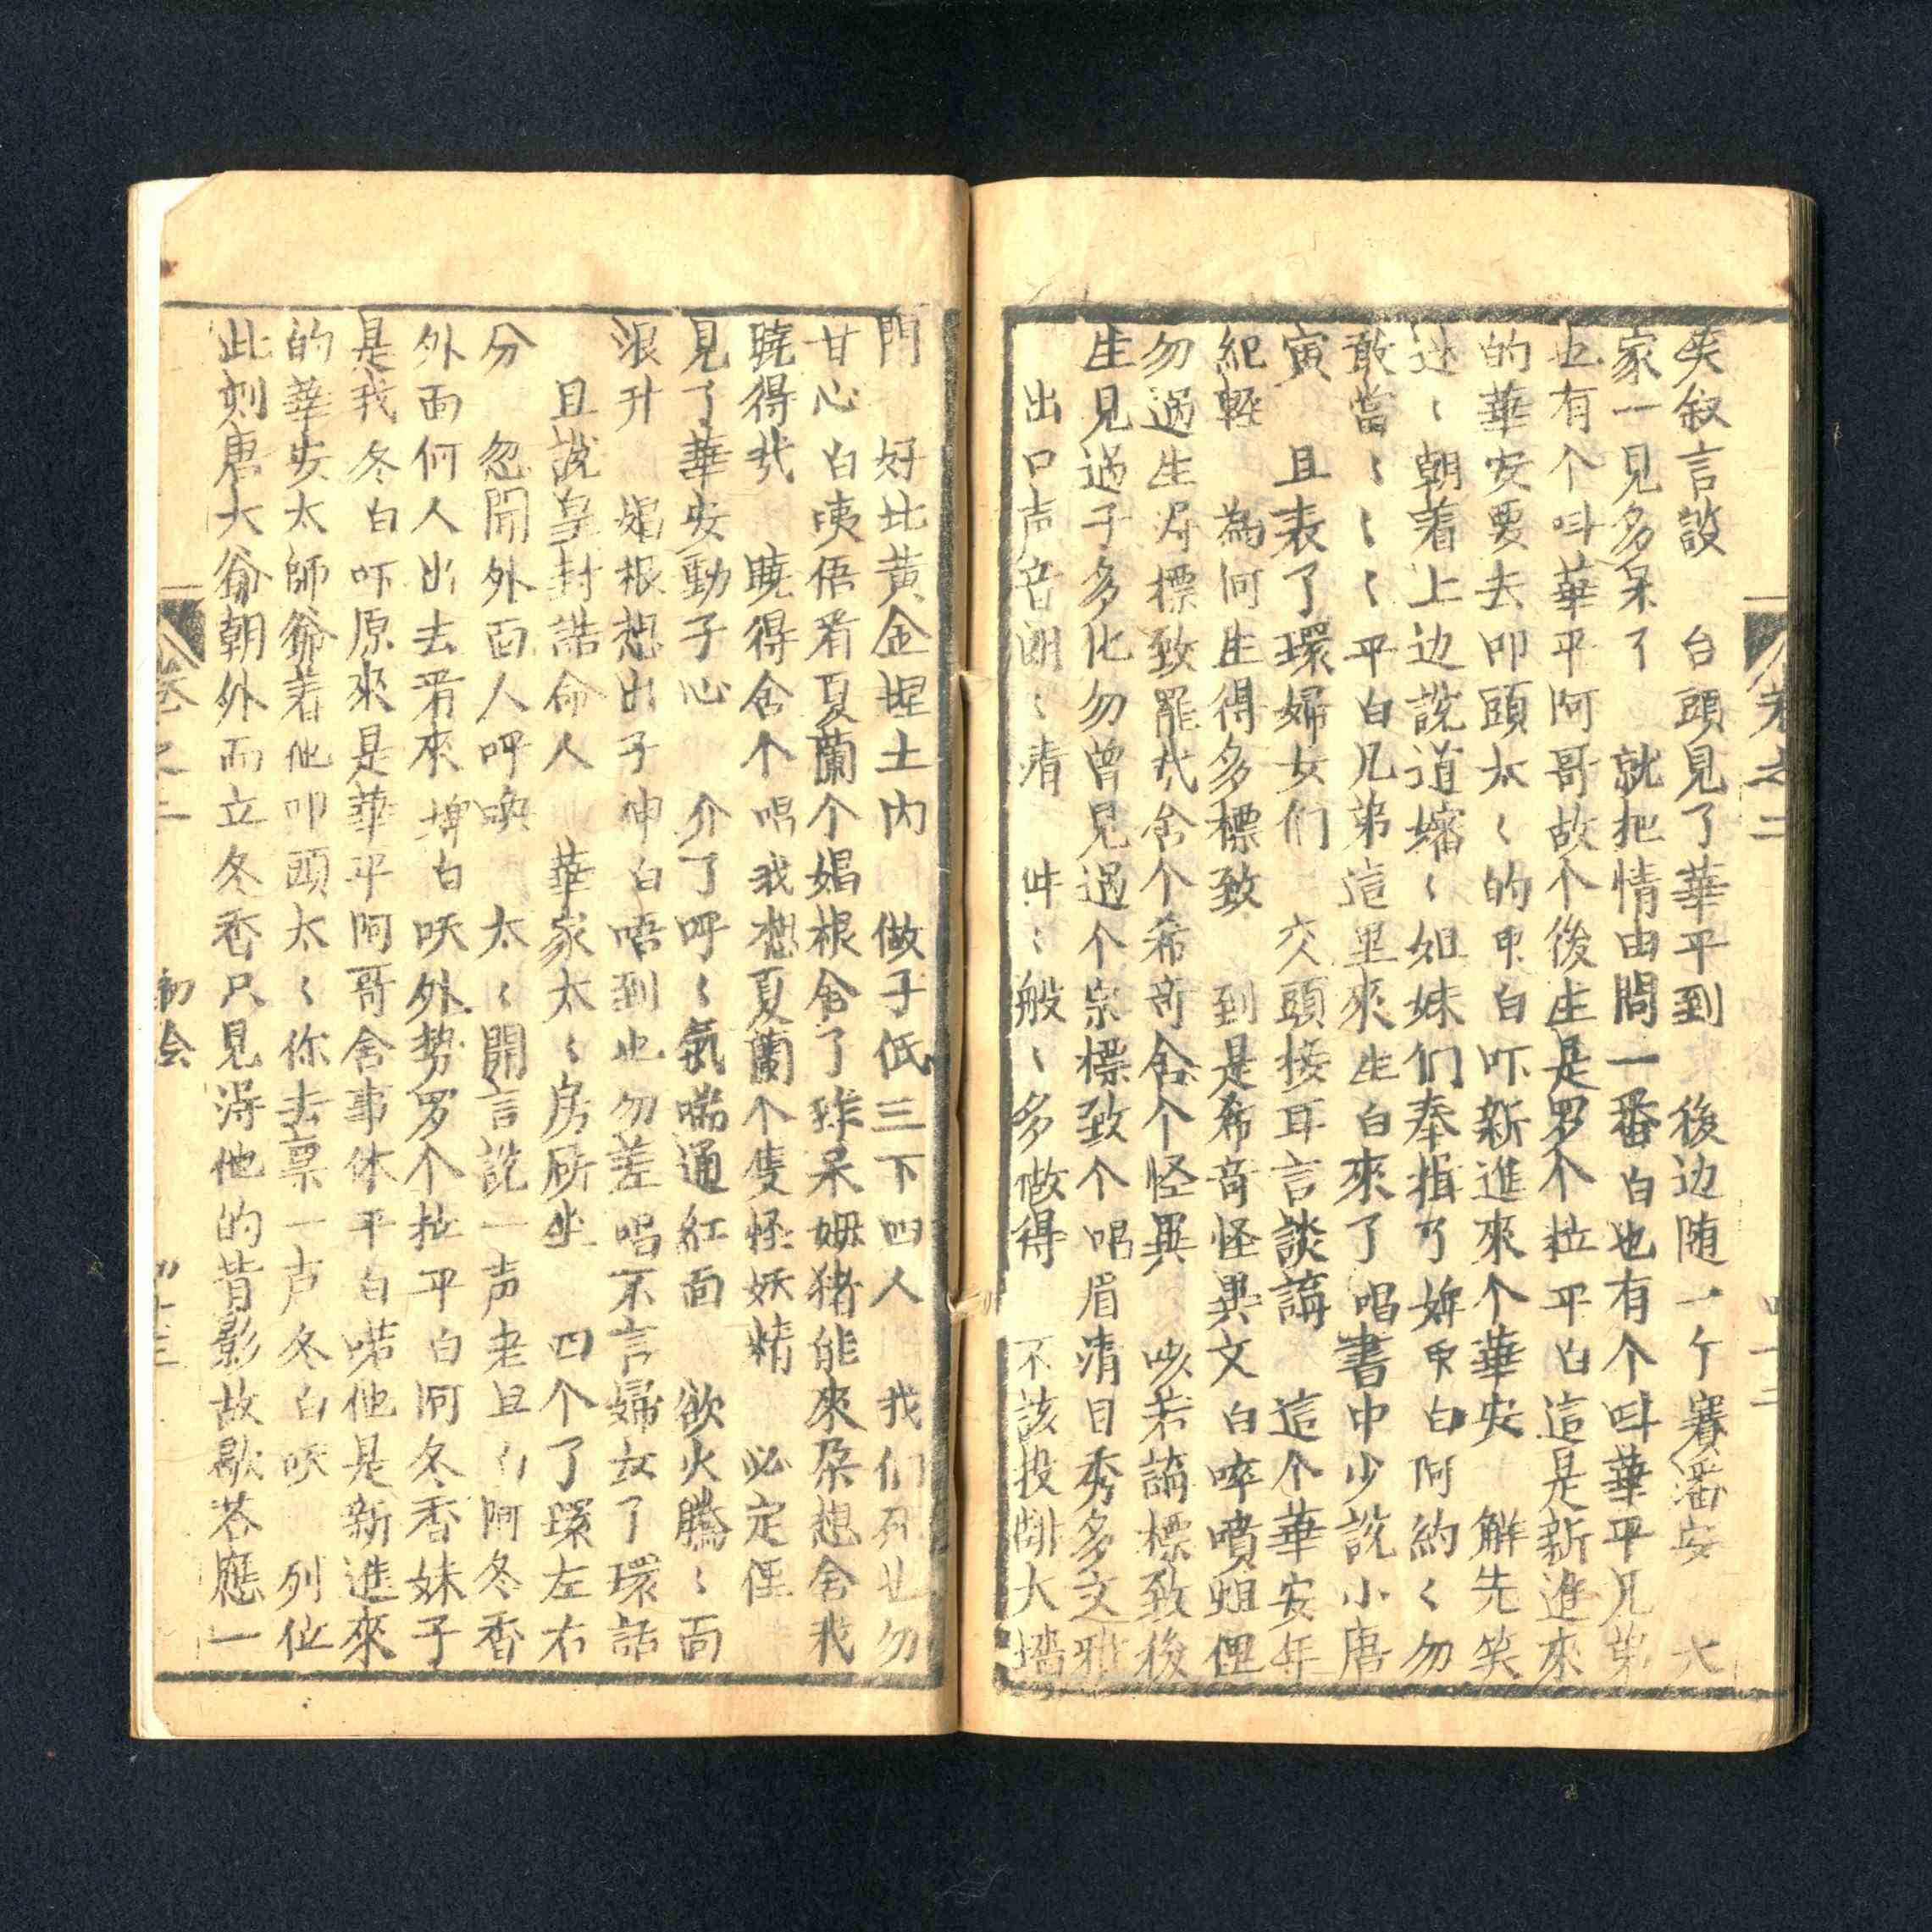 卷之二
笑叙言談 台頭見了華平到來 後边随一个賽潘安 大
家一見多呆了 就把情由問一番白也有个呌華平兄弟
也有个呌華平阿哥故个後生是罗个拉平白這是新進來
的華安要去叩頭太〻的甲白吓新進來个華安 解先笑
〻朝着上边說道嬸〻姐妹们奉揖了 白阿約〻勿
敢當〻〻〻平白兄弟這里來生白來了唱書中少說小唐
寅 且表了環婦女们 交頭接耳言談講 這个華安年
紀輕 為何生得多標致 到是希奇怪異文白啐噴姐俚
勿過生得標致罷哉舍个希奇舍个怪異 咳若論標致後
生見過子多化勿曾見過个宗標致个唱眉清目秀多文雅
出口声音朗〻清 件〻般〻多做得 不該投靠大墻
門 好比黄金埋土内 做子低三下四人 我们死也勿
甘心白咦俉看夏蘭个娼根舍了鉾呆姆猪能來朶想舍我
曉得哉 曉得舍个唱我想夏蘭个隻怪妖精 必定俚
見了華安動子心 介了呼〻氣喘通紅面 欲火騰〻面
浪升 娼根想出子神白唔到也勿差唱不言婦女了環話
且說皇封誥命人 華家太〻房所坐 四个了環左右
分 忽聞外面人呼喚 太〻開言說一声老旦白阿冬香
外面何人出去看來 婢白呋外勢罗个拉平白阿冬香妹子
是我冬白吓原來是華平阿哥舍事休平白喏他是新進來
的華安太師爺着他叩頭太〻你去禀一声冬白呋 列位
此刻唐大爺朝外而立冬香只見淂他的背影故歇荅應一
卷之二 初会